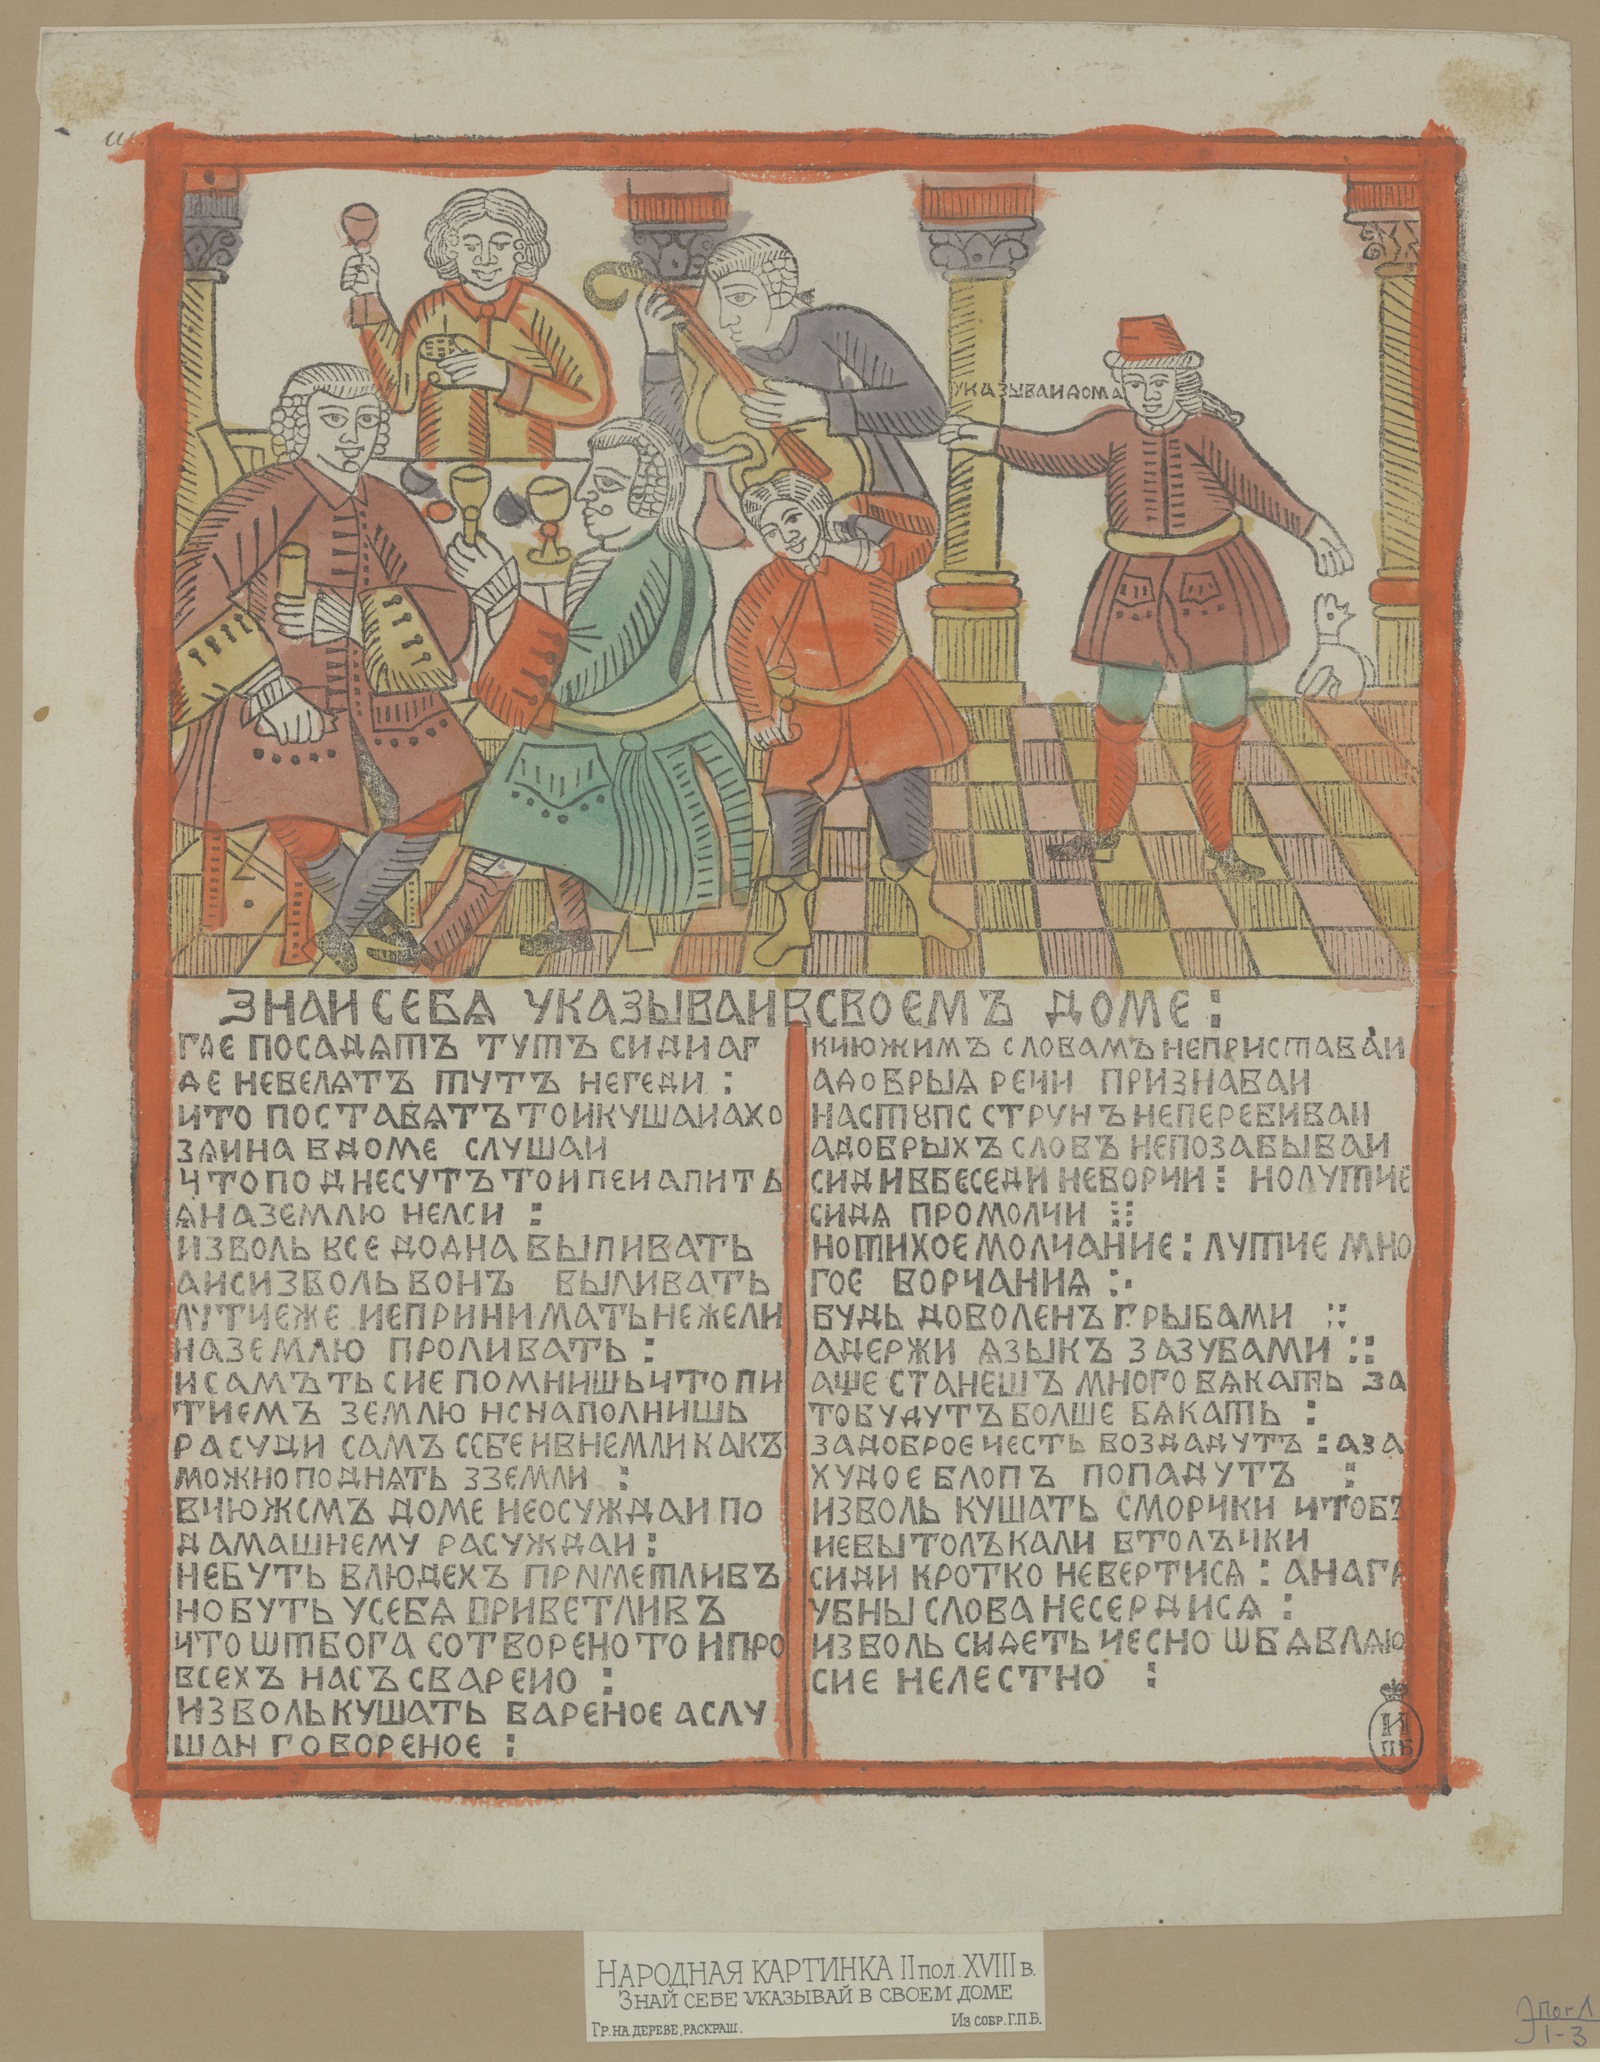 УКАЗЫВАИДОМА
ЗНАИ СЕБѦ УКАЗЫВАИВСВОЕМЪ ДОМЕ:
ГДЕ ПОСАДѦТЪ ТУТЪ СИДИ АГ
ДЕ НЕВЕЛѦТЪ ТУТЪ НЕГЕДИ :
ИТО ПОСТАВѦТЪ ТОИКУШАИ АХО
ЗѦИНА ВДОМЕ СЛУШАИ
ЧТО ПОДНЕСУТЪ ТОИ ПЕИ АПИТЬ
ѦНАЗЕМЛЮ НЕЛСИ :
ИЗВОЛЬ ВСЕ ДОДНА ВЫПИВАТЬ
АИСИЗВОЛЬ ВОНЪ ВЫЛИВАТЬ
ЛУТИЕЖЕ ИЕПРИНИМАТЬ НЕЖЕЛИ
НАЗЕМЛЮ ПРОЛИВАТЬ :
И САМЪ ТЬ СИЕ ПОМНИШЬ ИТО ПИ
ТИЕМЪ ЗЕМЛЮ НСНАПОЛНИШЬ
РАСУДИ САМЪ ССБЕ ИВНЕМЛИ КАКЪ
МОЖНО ПОДНѦТЬ ЗЗЕМЛИ :
ВИЮЖСМЪ ДОМЕ НЕОСУЖДАИ ПО
ДАМАШНЕМУ РАСУЖДАИ :
НЕБУТЬ ВЛЮДЕХЪ ПРИМЕТЛИВЪ
НО БУТЬ УСЕБѦ ПРИВЕТЛИВЪ
ЧТО ѾБОГА СОТВОРЕНО ТО ИПРО
ВСЕХЪ НАСЪ СВАРЕИО :
ИЗВОЛЬ КУШАТЬ ВАРЕНОЕ АСЛУ
ШАИ ГОВОРЕНОЕ :
КИЮЖИМЪ СЛОВАМЪ НЕПРИСТАВАИ
АДОБРЫѦ РЕЧИ ПРИЗНАВАИ
НАСТꙊПС СТРУНЪ НЕПЕРЕБИВАИ
АДОБРЫХЪ СЛОВЪ НЕПОЗАБЫВАИ
СИДИ ВБЕСЕДИ НЕВОРЧИ : НО ЛУТИЕ
СИДѦ ПРОМОЛЧИ ::
НОТИХОЕ МОЛИАНИЕ : ЛУТИЕ МНО
ГОЕ ВОРЧАНИѦ :.
БУДЬ ДОВОЛЕНЪ ГРЫБАМИ ::
АДЕРЖИ ѦЗЫКЪ ЗАЗУБАМИ ::
АЩЕ СТАНЕШЪ МНОГО ВѦКАТЬ ЗА
ТОБУДУТЪ БОЛШЕ БѦКАТЬ :
ЗАДОБРОЕ ИЕСТЬ ВОЗДАДУТЪ : АЗА
ХУДОЕ БЛОПЪ ПОПАДУТЪ :
ИЗВОЛЬ КУШАТЬ СМОРИКИ ИТОБЪ
ИЕВЫТОЛЪКАЛИ ВТОЛЪЧКИ
СИДИ КРОТКО НЕВЕРТИСѦ : АНАГР
УБНЫ СЛОВА НЕСЕРДИСѦ :
ИЗВОЛЬ СИДЕТЬ ИЕСНО ѠБѦВЛѦЮ
СИЕ НЕЛЕСТНО :
И
ПБ
НАРОДНАЯ КАРТИНКА II ПОЛ. XVIII В.
ЗНАЙ СЕБЕ УКАЗЫВАЙ В СВОЕМ ДОМЕ
ГР. НА ДЕРЕВЕ, РАСКРАШ. ИЗ СОБР. Г.П.Б.
1-3